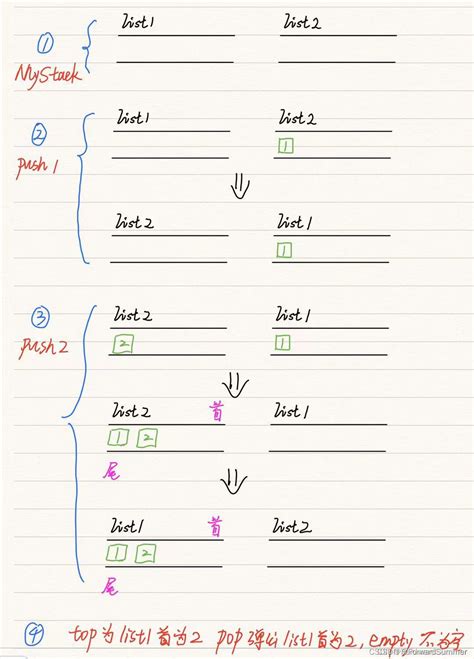 list1 list2
①
MyStack
② list1 list2
push1 1
list2 list1
1
③ list2 list1
push2 2 1
list2 首 list1
1 2
尾
list1 首 list2
1 2
尾
④ top为list1首为2 pop弹出list1首为2, empty不为空